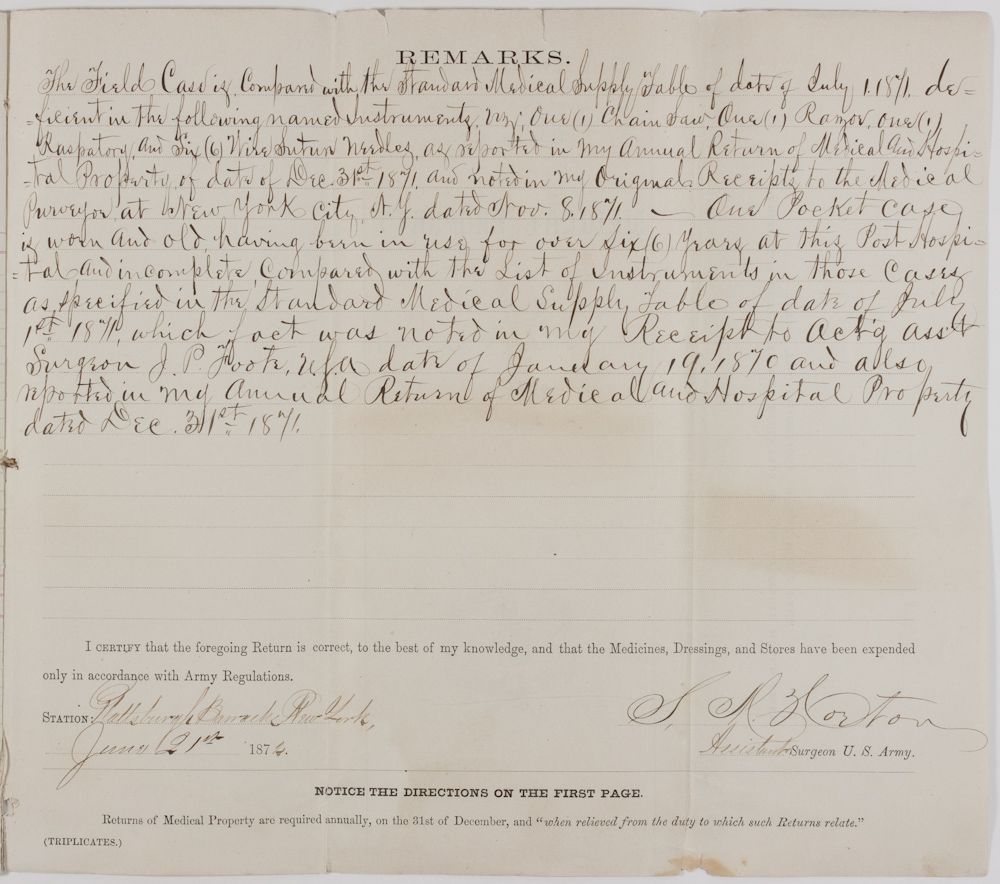 REMARKS.
The Field Case is, Compared with the Standard Medical Supply Table of date of July 1. 1871. de=
=ficient in the following named Instruments, viz, One (1) Chain Saw, One (1) Razor, one (1)
Raspatory, And Six (6) Wire Suture Needles, as reported in my Annual Return of Medical And Hospi=
=tal Property, of date of Dec. 31st 1871, and noted in my Original Receipts, to the Medical
Purveyor, at New York City, N.Y. dated Nov. 8. 1871. — One Pocket Case,
is worn And old, having been in use for over Six (6) Years, at this Post Hospi=
=tal And incomplete, Compared, with the List of Instruments in those Cases,
as, specified in the, Standard Medical Supply Table of date of July
1st 1871, which fact was noted in my Receipt to Act'g Ass't
Surgeon J. P. Foote, USA date of January 19, 1870 and also
reported in my Annual Return of Medical and Hospital Property
dated Dec. 31st 1871.
I CERTIFY that the foregoing Return is correct, to the best of my knowledge, and that the Medicines, Dressings, and Stores have been expended
only in accordance with Army Regulations.
STATION: Plattsburgh Barracks, New York,
S. M. Horton
June 21st 1872.
Assistant Surgeon U. S. Army.
NOTICE THE DIRECTIONS ON THE FIRST PAGE.
Returns of Medical Property are required annually, on the 31st of December, and "when relieved from the duty to which such Returns relate."
(TRIPLICATES.)